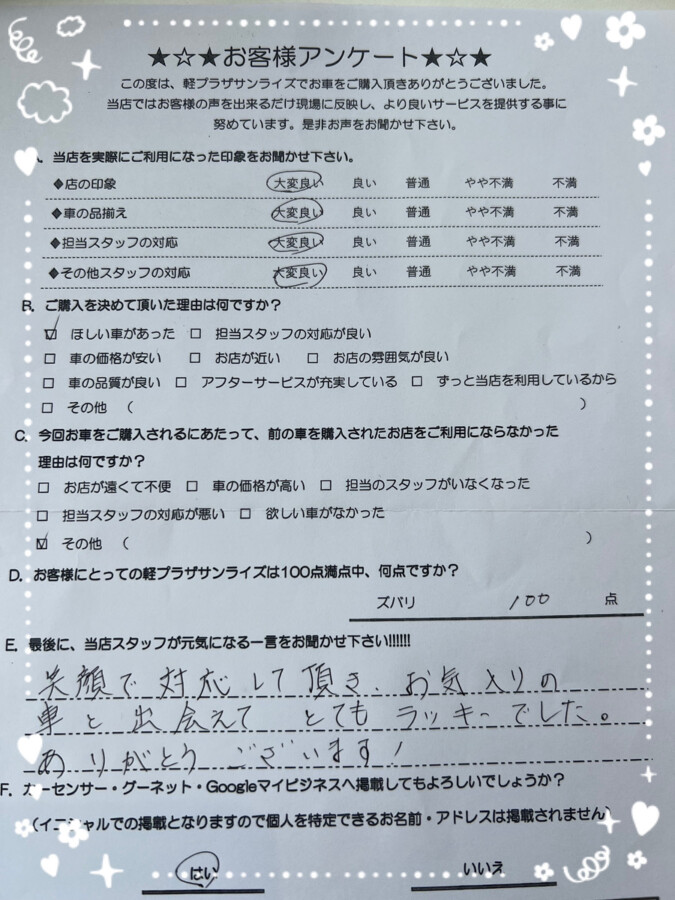 ★☆★お客様アンケート★☆★
この度は、軽プラザサンライズでお車をご購入頂きありがとうございました。
当店ではお客様の声を出来るだけ現場に反映し、より良いサービスを提供する事に
努めています。是非お声をお聞かせ下さい。
. 当店を実際にご利用になった印象をお聞かせ下さい。
◆店の印象 大変良い 良い 普通 やや不満 不満
◆車の品揃え 大変良い 良い 普通 やや不満 不満
◆担当スタッフの対応 大変良い 良い 普通 やや不満 不満
◆その他スタッフの対応 大変良い 良い 普通 やや不満 不満
B. ご購入を決めて頂いた理由は何ですか？
☑ ほしい車があった □ 担当スタッフの対応が良い
□ 車の価格が安い □ お店が近い □ お店の雰囲気が良い
□ 車の品質が良い □ アフターサービスが充実している □ ずっと当店を利用しているから
□ その他 （ ）
C. 今回お車をご購入されるにあたって、前の車を購入されたお店をご利用にならなかった
理由は何ですか？
□ お店が遠くて不便 □ 車の価格が高い □ 担当のスタッフがいなくなった
□ 担当スタッフの対応が悪い □ 欲しい車がなかった
☑ その他 （ ）
D. お客様にとっての軽プラザサンライズは100点満点中、何点ですか？
ズバリ 100 点
E. 最後に、当店スタッフが元気になる一言をお聞かせ下さい!!!!!!
笑顔で対応して頂き、お気入りの
車と出会えて とてもラッキーでした。
ありがとうございます!
F. カーセンサー・グーネット・Googleマイビジネスへ掲載してもよろしいでしょうか？
（イニシャルでの掲載となりますので個人を特定できるお名前・アドレスは掲載されません）
はい いいえ